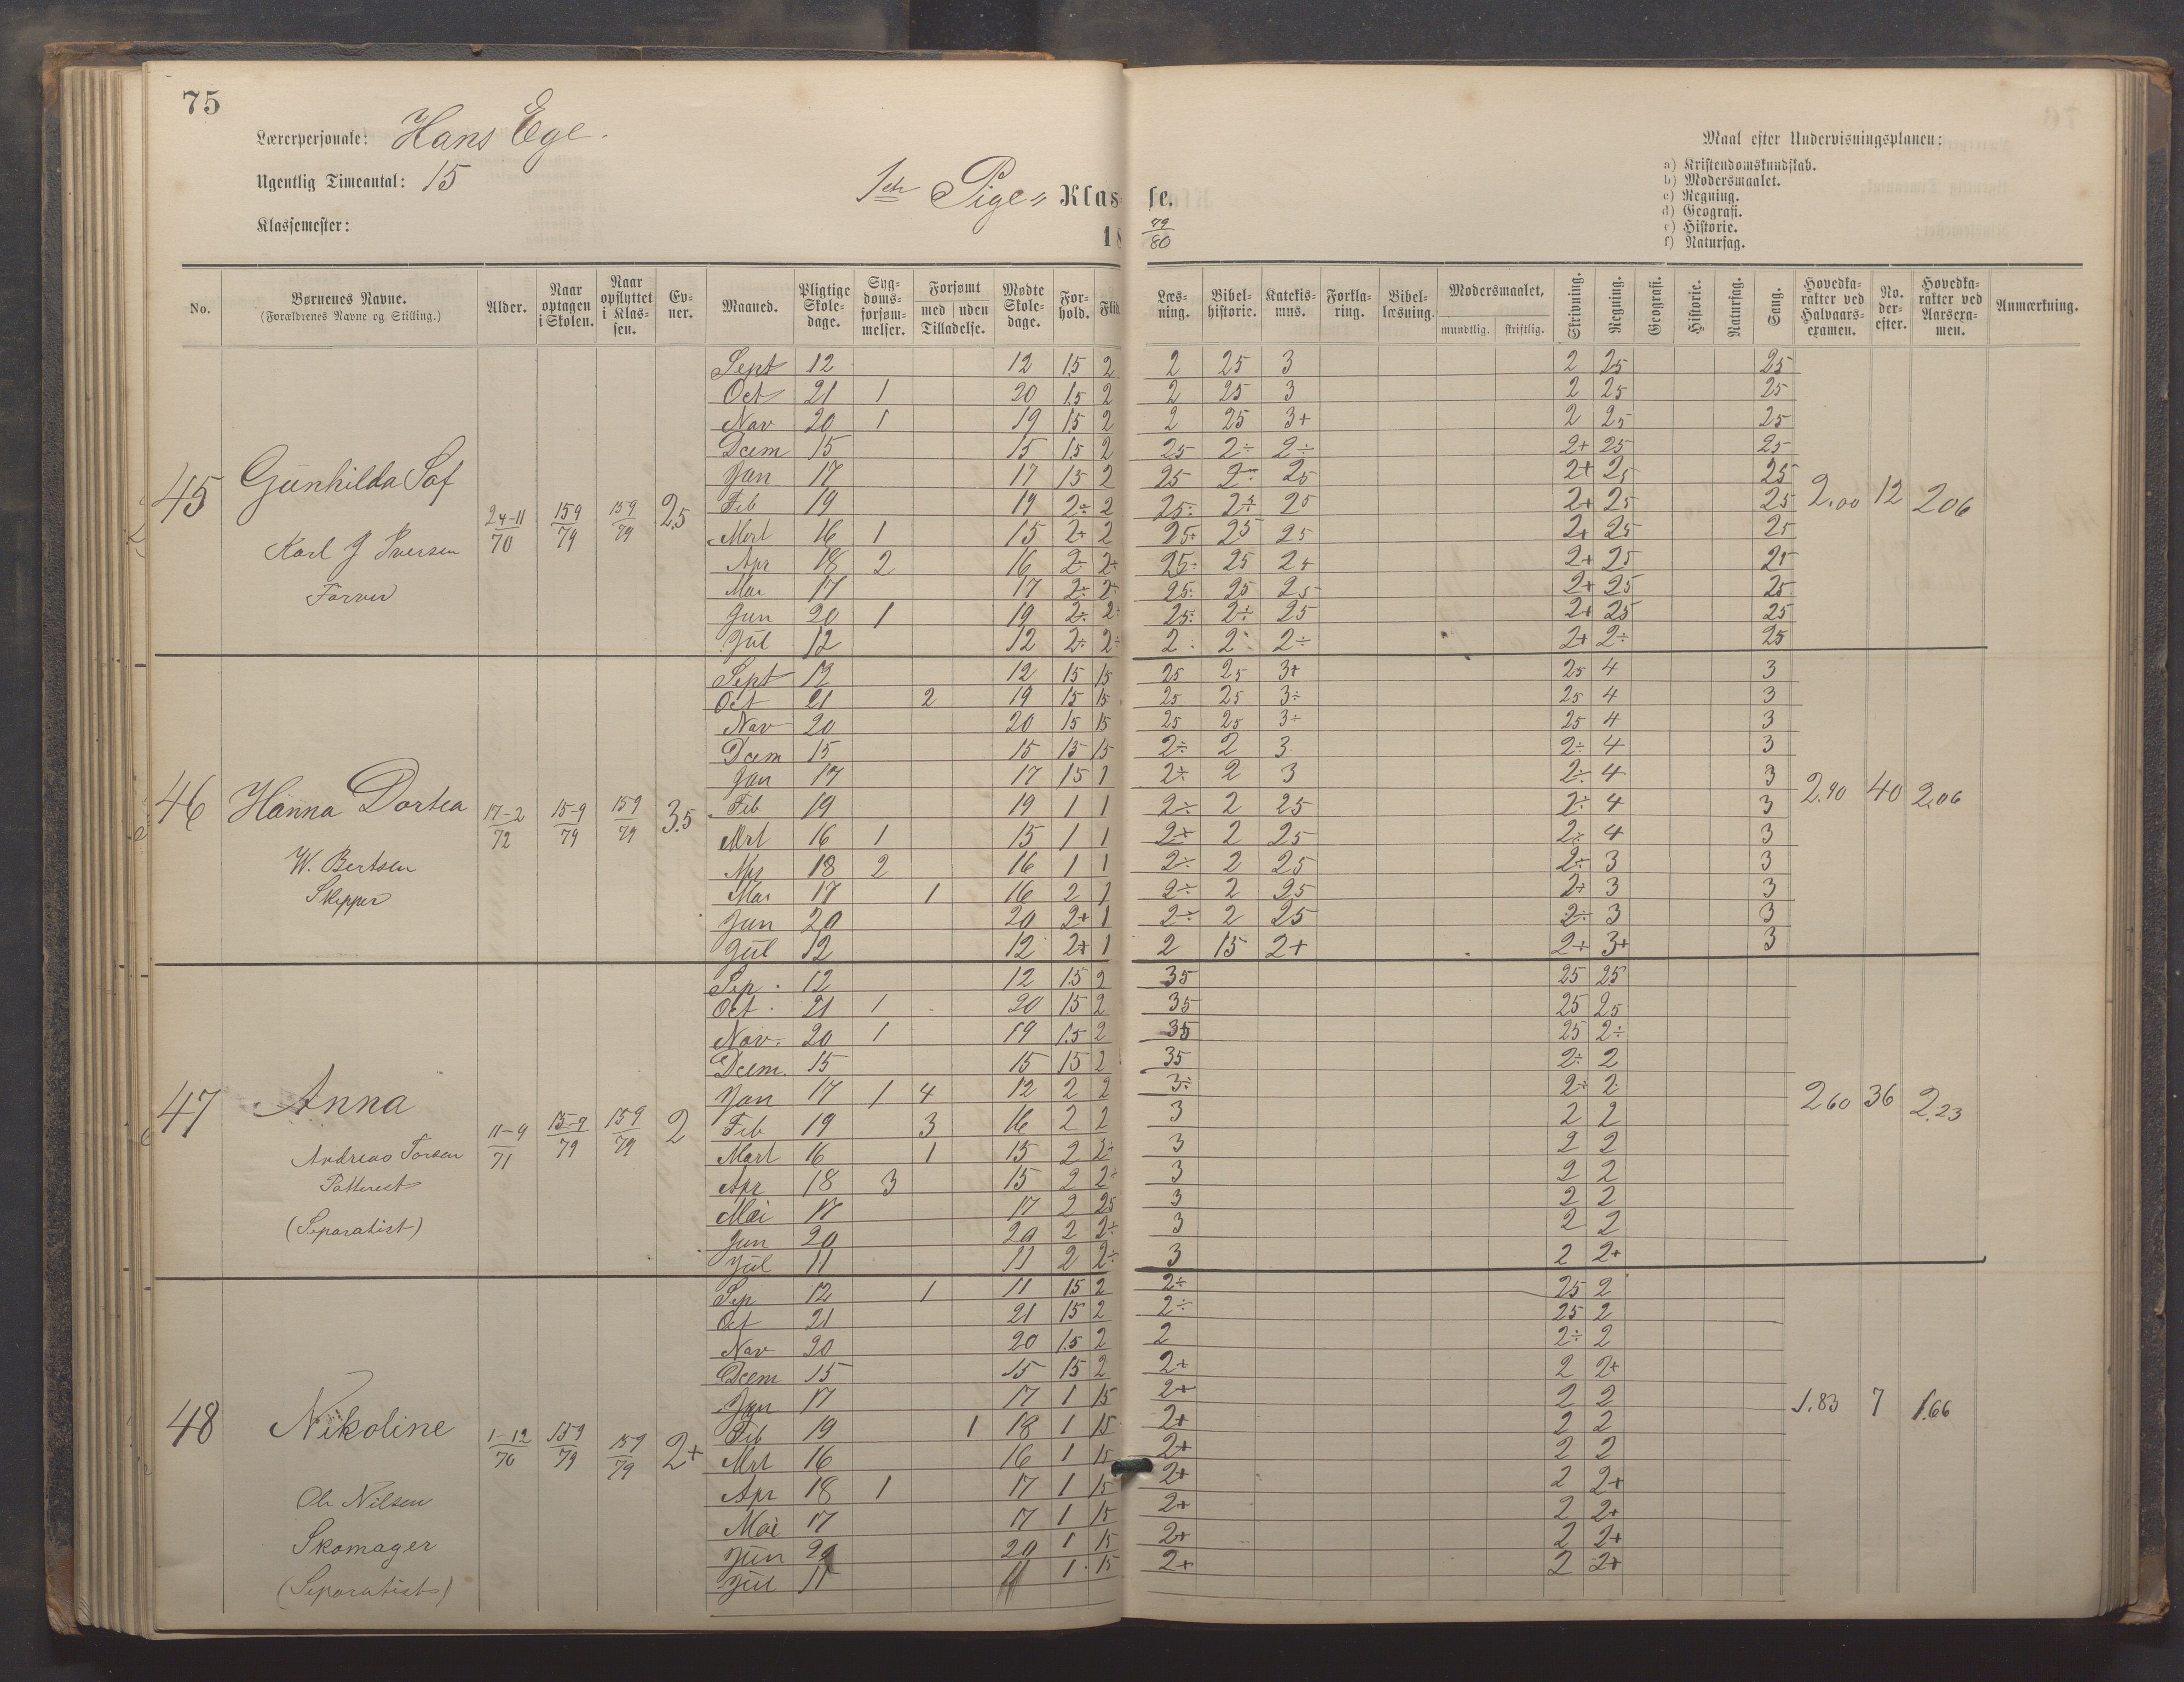 75
Lærerpersonale: Hans Ege.
Ugentlig Timeantal: 15
Klassemester:
1ste Pige„ Klasse.
18 79/80
Maal efter Undervisningsplanen:
a) Kristendomskundskab.
b) Modersmaalet.
c) Regning.
d) Geografi.
e) Historie.
f) Naturfag.
No. Børnenes Navne. (Forældrenes Navne og Stilling.) Alder. Naar optagen i Skolen. Naar opflyttet i Klassen. Evner. Maaned. Pligtige Skoledage. Sygdomsforsømmelser. Forsømt med uden Tilladelse. Mødte Skoledage. Forhold. Flid. Læsning. Bibelhistorie. Katekismus. Forklaring. Bibellæsning. Modersmaalet, mundtlig. skriftlig. Skrivning. Regning. Geografi. Historie. Naturfag. Sang. Hovedkarakter ved Halvaarsexamen. No. derefter. Hovedkarakter ved Aarsexamen. Anmærkning.
45 Gunhilda Sof
Karl J Iversen
Farver
24-11/70 159/79 159/79 2.5
Sept 12 12 15 2 2 25 3 2 25 25
Oct 21 1 20 15 2 2 25 3 2 25 25
Nov 20 1 19 15 2 2 25 3+ 2 25 25
Dcem 15 15 15 2 25 2÷ 2÷ 2+ 25 25
Jan 17 17 15 2 25 2÷ 25 2+ 25 25
Feb 19 19 2÷ 2 25÷ 2÷ 25 2+ 25 25 2.00 12 206
Mrt 16 1 15 2+ 2 25÷ 25 25 2+ 25 25
Apr 18 2 16 2÷ 2÷ 25÷ 25 25 2+ 25 25
Mai 17 17 2÷ 2÷ 25÷ 25 25 2+ 25 25
Jun 20 1 19 2÷ 2÷ 25÷ 2÷ 25 2+ 25 25
Jul 12 12 2÷ 2÷ 2 2 2÷ 2+ 2÷ 25
46 Hanna Dortea
W. Bertsen
Skipper
17-2/72 15-9/79 159/79 3.5
Sept 12 12 15 15 25 25 3+ 25 4 3
Oct 21 2 19 15 15 25 25 3÷ 25 4 3
Nov 20 20 15 15 25 25 3÷ 25 4 3
Dcem 15 15 15 15 2÷ 2 3 2÷ 4 3
Jan 17 17 15 1 2÷ 2 3 2÷ 4 3
Feb 19 19 1 1 2÷ 2 25 2÷ 4 3 2.90 40 2.06
Mrt 16 1 15 1 1 2÷ 2 25 2÷ 4 3
Apr 18 2 16 1 1 2÷ 2 25 2÷ 3 3
Mai 17 1 16 2 1 2÷ 2 25 2÷ 3 3
Jun 20 20 2+ 1 2÷ 2 25 2÷ 3 3
Jul 12 12 2+ 1 2 15 2+ 2÷ 3+ 3
47 Anna
Andreas
(Separatist)
11-9/71 15-9/79 159/79 2
Sep. 12 12 15 2 35 25 25
Oct. 21 1 20 15 2 35 25 25
Nov. 20 1 19 15 2 35 25 2÷
Dcem. 15 15 15 2 35 2÷ 2
Jan 17 1 4 12 2 2 3÷ 2÷ 2
Feb 19 3 16 2 2 3 2 2 260 36 2.23
Mart 16 1 15 2 2÷ 3 2 2
Apr 18 3 15 2 2÷ 3 2 2
Mai 17 17 2 25 3 2 2
Jun 20 20 2 2÷ 3 2 2
Jul 11 11 2 2÷ 3 2 2+
48 Nikoline
Ole Nilsen
Skomager
(Separatist)
1-12/70 159/79 159/79 2+
Sep 12 1 11 15 2 2÷ 25 2
Oct 21 21 15 2 2÷ 25 2
Nov 20 20 15 2 2 2÷ 2
Dcem 15 15 15 2 2+ 2 2+
Jan 17 17 1 15 2+ 2 2 1.83 7 1.66
Feb 19 1 18 1 15 2+ 2 2
Mrt 16 16 1 15 2+ 2 2
Apr 18 1 17 1 15 2+ 2 2+
Mai 17 17 1 15 2+ 2 2+
Jun 20 20 1 15 2+ 2 2+
Jul 11 11 1 15 2+ 2 2+